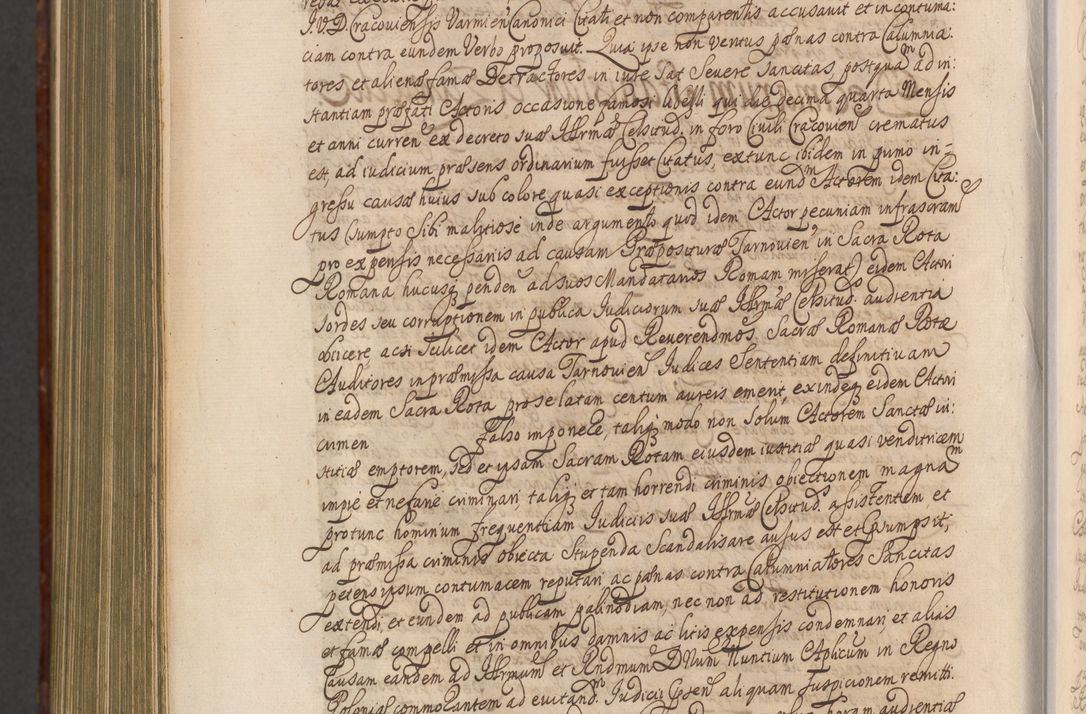 I.V.D. Cracoviensis Varmien Canonici Citati et non comparentis accusavit et in contuma:
ciam contra eundem Verbo proposuit. Quia ipse non veritus pænas contra Calumnia:
tores et alienæ famæ Detractores in iure sat Severe Sancitas, postquam ad in:
stantiam præfati Actoris occasione famosi libelli qui die decima quarta Mensis
et anni curren ex decreto suæ Illmæ Celsitud. in foro Civili Cracovien crematus
est, ad iudicium præsens ordinarium fuisset Citatus, extunc ibidem in primo in=
gressu causæ huius sub colore quasi exceptionis contra eundm Actorem idem Cita:
tus (sumpto sibi malitiose inde argumento quod idem Actor pecuniam infrascram
pro expensis necessariis ad causam Præpositura Tarnovien in Sacra Rota
Romana hucusq penden ad suos Mandatarios Romam miserat) eidem Actori
sordes seu corruptionem in publica Iudiciorum suæ Illmæ Celsitud. audientia
obiicere, ac si scilicet idem Actor apud Reverendmos Sacræ Romanæ Rotæ
Auditores in præmissa causa Tarnovien Iudices Sententiam definitivam
in eadem Sacra Rota pro se latam centum aureis emerit, exindeq eidem Actori
crimen falso imponere, taliq modo non solum Actorem Sanctæ iu:
stitiæ emptorem, sed et ipsam Sacram Rotam eiusdem iustitiæ quasi venditricem
impie et nefarie criminari, taliq et tam horrendi criminis obiectionem magnam
protunc hominum frequentiam Iudiciis suæ Illmæ Celsitud. assistentem et
ad præmissa criminis obiecta Stupenda Scandalisare ausus est et præsumpsit,
petens ipsum contumacem reputari ac pænas contra Calumniatores Sancitas
extendi, et eundem ad publicam palinodiam, nec non ad restitutionem honoris
et famæ compelli et in omnibus damnis ac litis expensis condemnari, et alias
Causam eandem ad Illmum et Rndmum D Num Nuntium Aplicum in Regno
Poloniæ commorantem ad evitand Iudicii præsen aliquam suspicionem remitti.
horam audientiæ